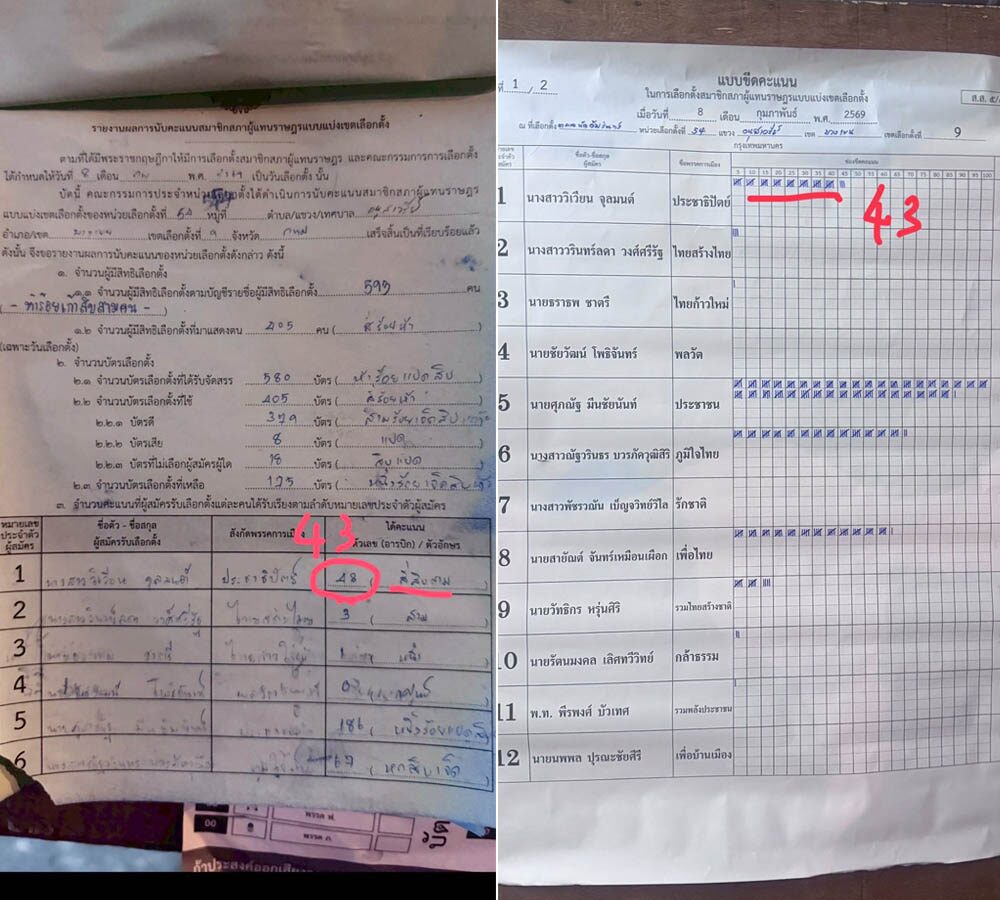 รายงานผลการนับคะแนนสมาชิกสภาผู้แทนราษฎรแบบแบ่งเขตเลือกตั้ง
ตามที่ได้มีพระราชกฤษฎีกาให้มีการเลือกตั้งสมาชิกสภาผู้แทนราษฎร และคณะกรรมการการเลือกตั้ง
ได้กำหนดให้วันที่ 8 เดือน กพ. พ.ศ. 2569 เป็นวันเลือกตั้ง นั้น
บัดนี้ คณะกรรมการประจำหน่วยเลือกตั้งได้ดำเนินการนับคะแนนสมาชิกสภาผู้แทนราษฎร
แบบแบ่งเขตเลือกตั้งของหน่วยเลือกตั้งที่ 54 หมู่ที่ ตำบล/แขวง/เทศบาล อนุสาวรีย์
อำเภอ/เขต บางเขน เขตเลือกตั้งที่ 9 จังหวัด กทม เสร็จสิ้นเป็นที่เรียบร้อยแล้ว
ดังนั้น จึงขอรายงานผลการนับคะแนนของหน่วยเลือกตั้งดังกล่าว ดังนี้
๑. จำนวนผู้มีสิทธิเลือกตั้ง
๑.๑ จำนวนผู้มีสิทธิเลือกตั้งตามบัญชีรายชื่อผู้มีสิทธิเลือกตั้ง 593 คน
( - ห้าร้อยเก้าสิบสามคน - )
๑.๒ จำนวนผู้มีสิทธิเลือกตั้งที่มาแสดงตน 405 คน ( สี่ร้อยห้า )
(เฉพาะวันเลือกตั้ง)
๒. จำนวนบัตรเลือกตั้ง
๒.๑ จำนวนบัตรเลือกตั้งที่ได้รับจัดสรร 580 บัตร ( ห้าร้อยแปดสิบ )
๒.๒ จำนวนบัตรเลือกตั้งที่ใช้ 405 บัตร ( สี่ร้อยห้า )
๒.๒.๑ บัตรดี 379 บัตร ( สามร้อยเจ็ดสิบเก้า )
๒.๒.๒ บัตรเสีย 8 บัตร ( แปด )
๒.๒.๓ บัตรที่ไม่เลือกผู้สมัครผู้ใด 18 บัตร ( สิบแปด )
๒.๓ จำนวนบัตรเลือกตั้งที่เหลือ 175 บัตร ( หนึ่งร้อยเจ็ดสิบห้า
๓. จำนวนคะแนนที่ผู้สมัครรับเลือกตั้งแต่ละคนได้รับเรียงตามลำดับหมายเลขประจำตัวผู้สมัคร
หมายเลขประจำตัวผู้สมัคร ชื่อตัว - ชื่อสกุล ผู้สมัครรับเลือกตั้ง สังกัดพรรคการเมือง ได้คะแนน ตัวเลข (อารบิก) / ตัวอักษร
43
1 นางสาววิเวียน จุลมนต์ ประชาธิปัตย์ 48 ( สี่สิบสาม )
2 3 ( สาม )
3 1 หนึ่ง
4 0
5 186 ( หนึ่งร้อยแปดสิบ
6 67 ( หกสิบเจ็ด )
00 พรรค ฟ.
พรรค ภ.
ถ้าประสงค์ออกเสียง
แบบขีดคะแนน
ที่ 1 / 2
ในการเลือกตั้งสมาชิกสภาผู้แทนราษฎรแบบแบ่งเขตเลือกตั้ง
ส.ส. ๕/
เมื่อวันที่ 8 เดือน กุมภาพันธ์ พ.ศ. 2569
ณ ที่เลือกตั้ง หน่วยเลือกตั้งที่ 54 แขวง อนุสาวรีย์ เขต บางเขน เขตเลือกตั้งที่ 9
กรุงเทพมหานคร
ชื่อตัว-ชื่อสกุล ชื่อพรรคการเมือง ช่องขีดคะแนน
5 10 15 20 25 30 35 40 45 50 55 60 65 70 75 80 85 90 95 100
1 นางสาววิเวียน จุลมนต์ ประชาธิปัตย์ 43
2 นางสาววรินทร์ลดา วงศ์ศรีรัฐ ไทยสร้างไทย
3 นายธราธพ ชาตรี ไทยก้าวใหม่
4 นายชัยวัฒน์ โพธิจันทร์ พลวัต
5 นายศุภณัฐ มีนชัยนันท์ ประชาชน
6 นางสาวณัฐวรินธร บวรภัควุฒิสิริ ภูมิใจไทย
7 นางสาวพัชรวณัน เบ็ญจวิทย์วิไล รักชาติ
8 นายสายัณต์ จันทร์เหมือนเผือก เพื่อไทย
9 นายวัทธิกร หรุ่นศิริ รวมไทยสร้างชาติ
10 นายรัตนมงคล เลิศทวีวิทย์ กล้าธรรม
11 พ.ท. พีรพงศ์ บัวเทศ รวมพลังประชาชน
12 นายนพพล ปุรณะชัยศีรี เพื่อบ้านเมือง